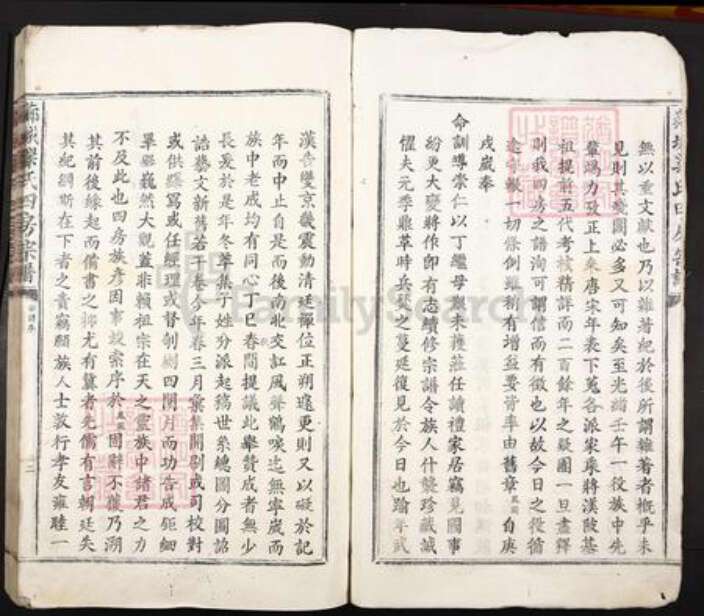 無以重文獻也乃以雜著紀於後所謂雜著者概乎未
見則其幾園必多又可知矣至光緒壬午一役族中先
輩竭力攷正上乘唐宋年表下蒐各派家乘將漢陂基
祖提前五代考核精詳而二百餘年之疑團一旦盡釋
則我四房之譜洵可謂信而有徵也以故今日之役循
途守轍一切條例雖稍有增益要皆率由舊章 自庚
戌歲奉
命訓導崇仁以丁繼母艱未獲莅任讀禮家居竊見國事
紛更大變將作卽有志續修宗譜令族人什襲珍藏誠
懼夫元季鼎革時兵燹之蔓延復見於今日也踰年武
漢告變京畿震動清廷禪位正朔遽更則又以礙於記
年而中止自是而後南北交訌風聲鶴唳迄無寧歲而
族中老成均有同心丁巳春間提議此舉贊成者無少
長爰於是年冬萃集子姓分派起稿世系總圖分圖誥
誥藝文新舊若干卷今年春三月彙集開剞或司校對
或供繕寫或任經理或督剞劂四閱月而功告成鉅細
畢臚巍然大觀蓋非賴祖宗在天之靈族中諸君之力
不及此也四房族彥因事竣索序於 固辭不獲乃溯
其前後緣起而備書之抑尤有冀者先儒有言朝廷失
其紀綱斯在下者之責竊願族人士敦行孝友雍睦一
氏四房宗譜
FamilySearch